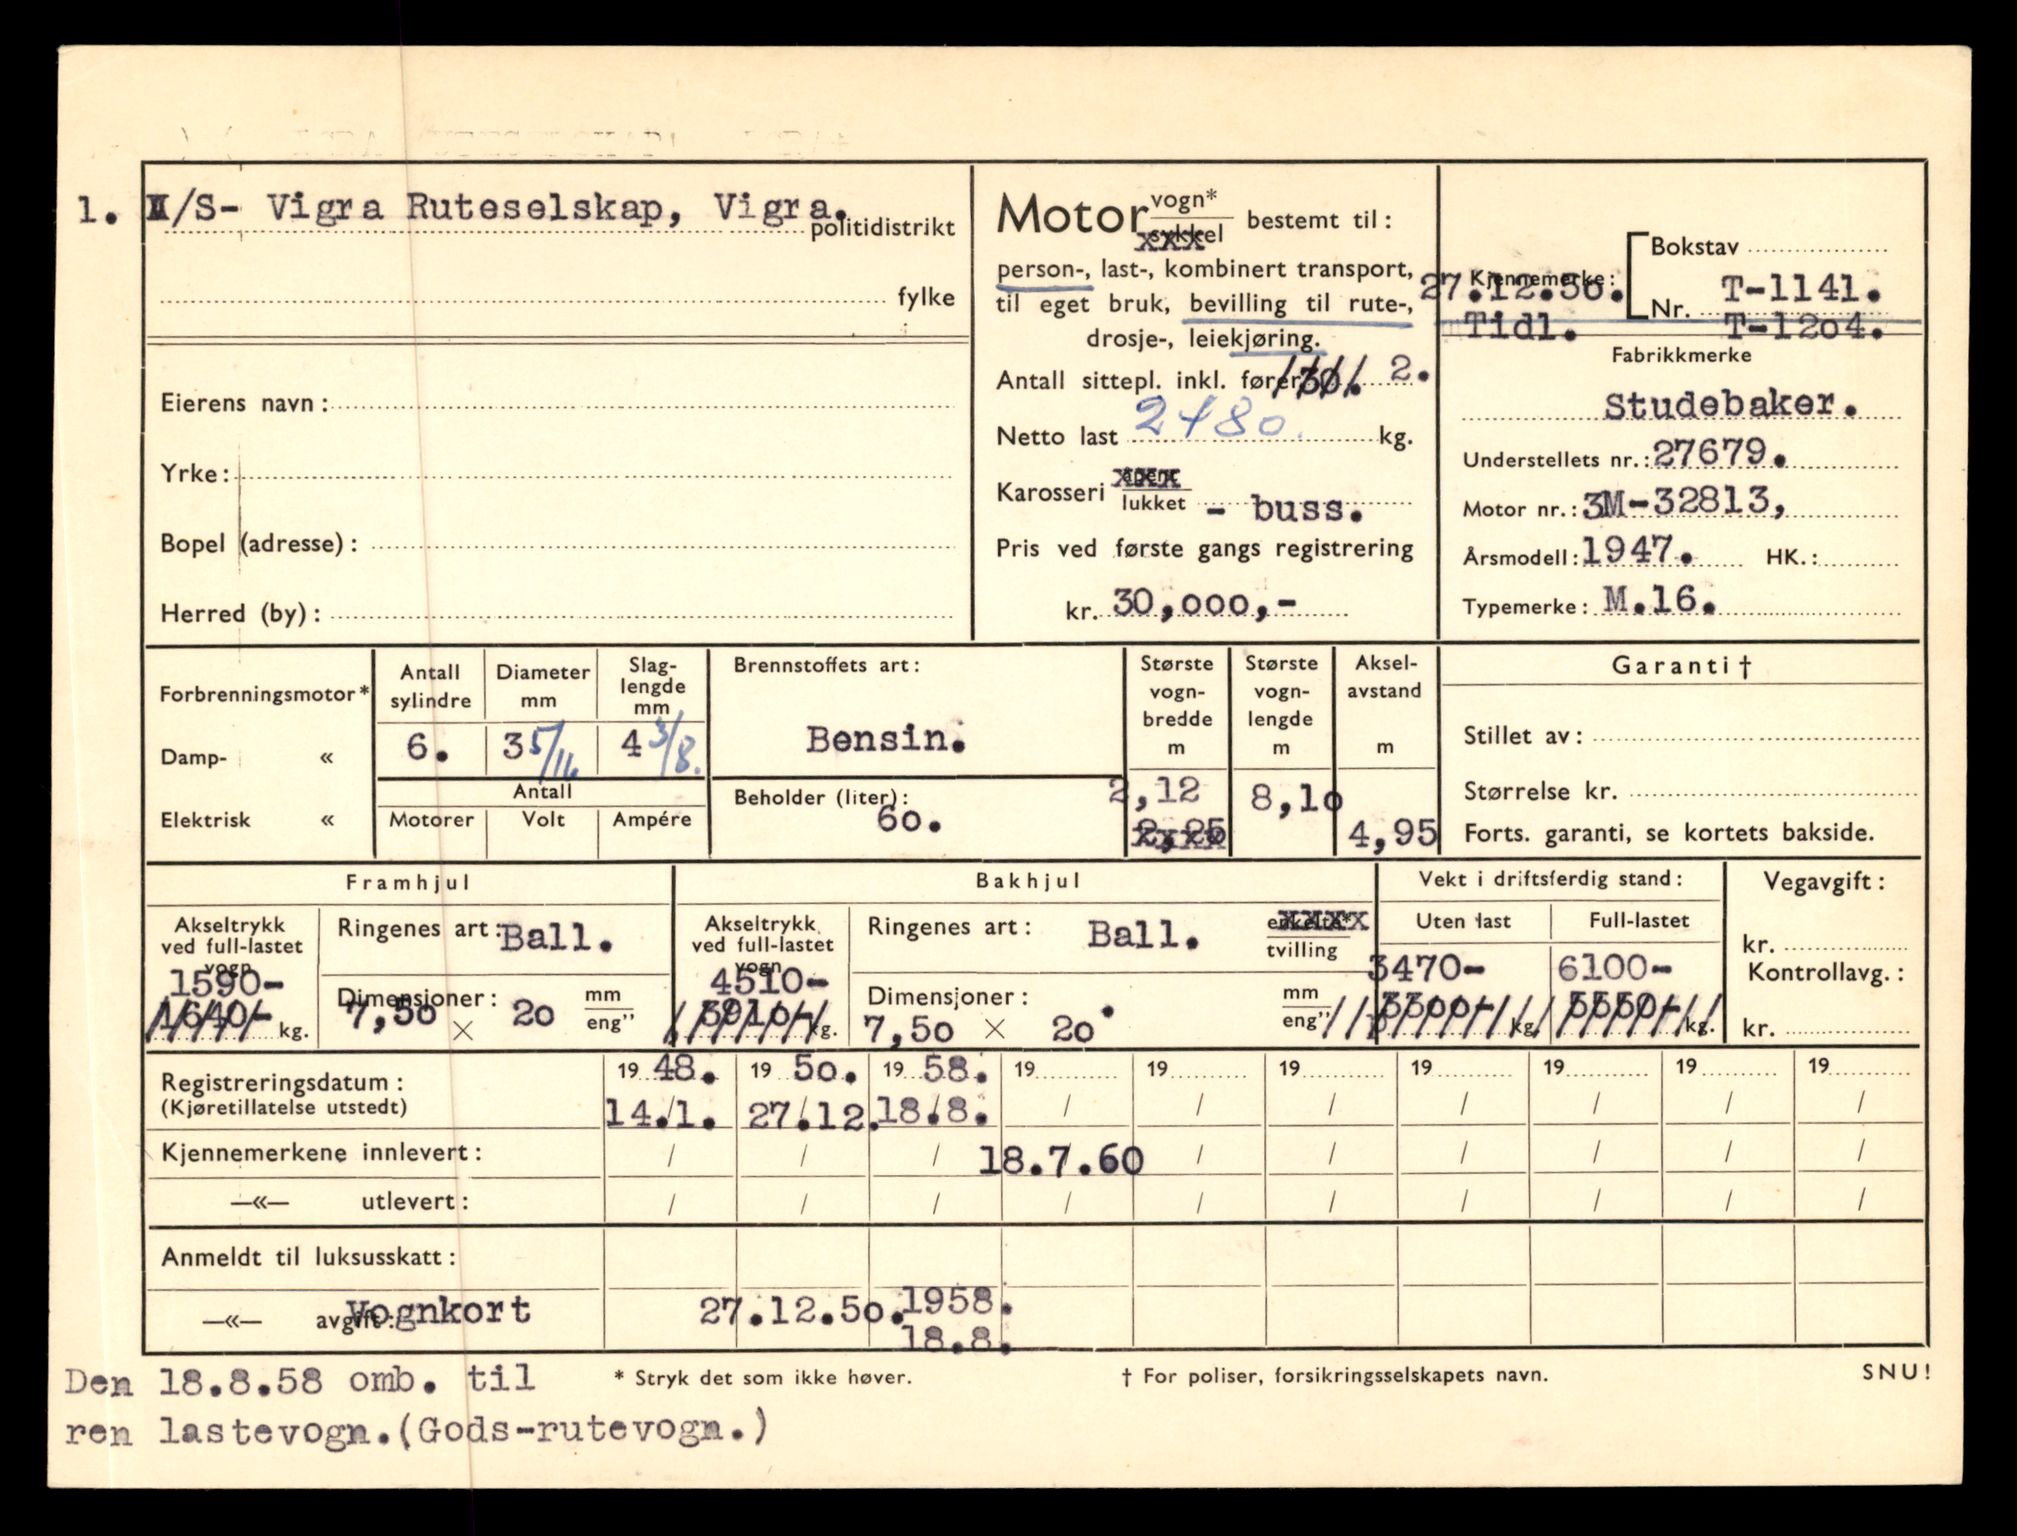 1. I/S- Vigra Ruteselskap, Vigra.
politidistrikt
fylke
Eierens navn:
Yrke:
Bopel (adresse):
Herred (by):
Motor vogn*
sykkel xxx
bestemt til:
person-, last-, kombinert transport,
til eget bruk, bevilling til rute-,
drosje-, leiekjøring.
Antall sittepl. inkl. fører 30. 2.
Netto last 2480. kg.
Karosseri åpent xxx
lukket - buss.
Pris ved første gangs registrering
kr. 30,000,-
Bokstav
Kjennemerke: 27.12.50.
Nr. T-1141.
Tidl. T-1204.
Fabrikkmerke
Studebaker.
Understellets nr.: 27679.
Motor nr.: 3M-32813,
Årsmodell: 1947. HK.:
Typemerke: M.16.
Forbrenningsmotor*
Damp- «
Elektrisk «
Antall sylindre
Diameter mm
Slag-
lengde
mm
6. 3 5/16 4 3/8.
Antall
Motorer Volt Ampére
Brennstoffets art:
Bensin.
Beholder (liter):
60.
Største
vogn-
bredde
m
2,12
2,25 xxxx
Største
vogn-
lengde
m
8,10
Aksel-
avstand
m
4,95
Garanti †
Stillet av:
Størrelse kr.
Forts. garanti, se kortets bakside.
Framhjul
Akseltrykk
ved full-lastet
vogn
1590-
1640- kg.
Ringenes art: Ball.
Dimensjoner:
7,50 × 20 mm
eng"
Bakhjul
Akseltrykk
ved full-lastet
vogn
4510-
3910- kg.
Ringenes art: Ball.
enkelte* xxxx
tvilling
Dimensjoner:
7,50 × 20 mm
eng"
Vekt i driftsferdig stand:
Uten last Full-lastet
3470- 6100-
3300- kg. 5550- kg.
Vegavgift:
kr.
Kontrollavg.:
kr.
Registreringsdatum: 19 48. 19 50. 19 58. 19 19 19 19 19 19 19
(Kjøretillatelse utstedt) 14./1. 27/12. 18/8. / / / / / / /
Kjennemerkene innlevert: / / / 18.7.60 / / / / / /
—«— utlevert: / / / / / / / / / /
Anmeldt til luksusskatt:
—«— avgift: Vognkort 27.12.50. 1958.
18.8.
Den 18.8.58 omb. til
ren lastevogn.(Gods-rutevogn.)
* Stryk det som ikke høver.
† For poliser, forsikringsselskapets navn.
SNU!